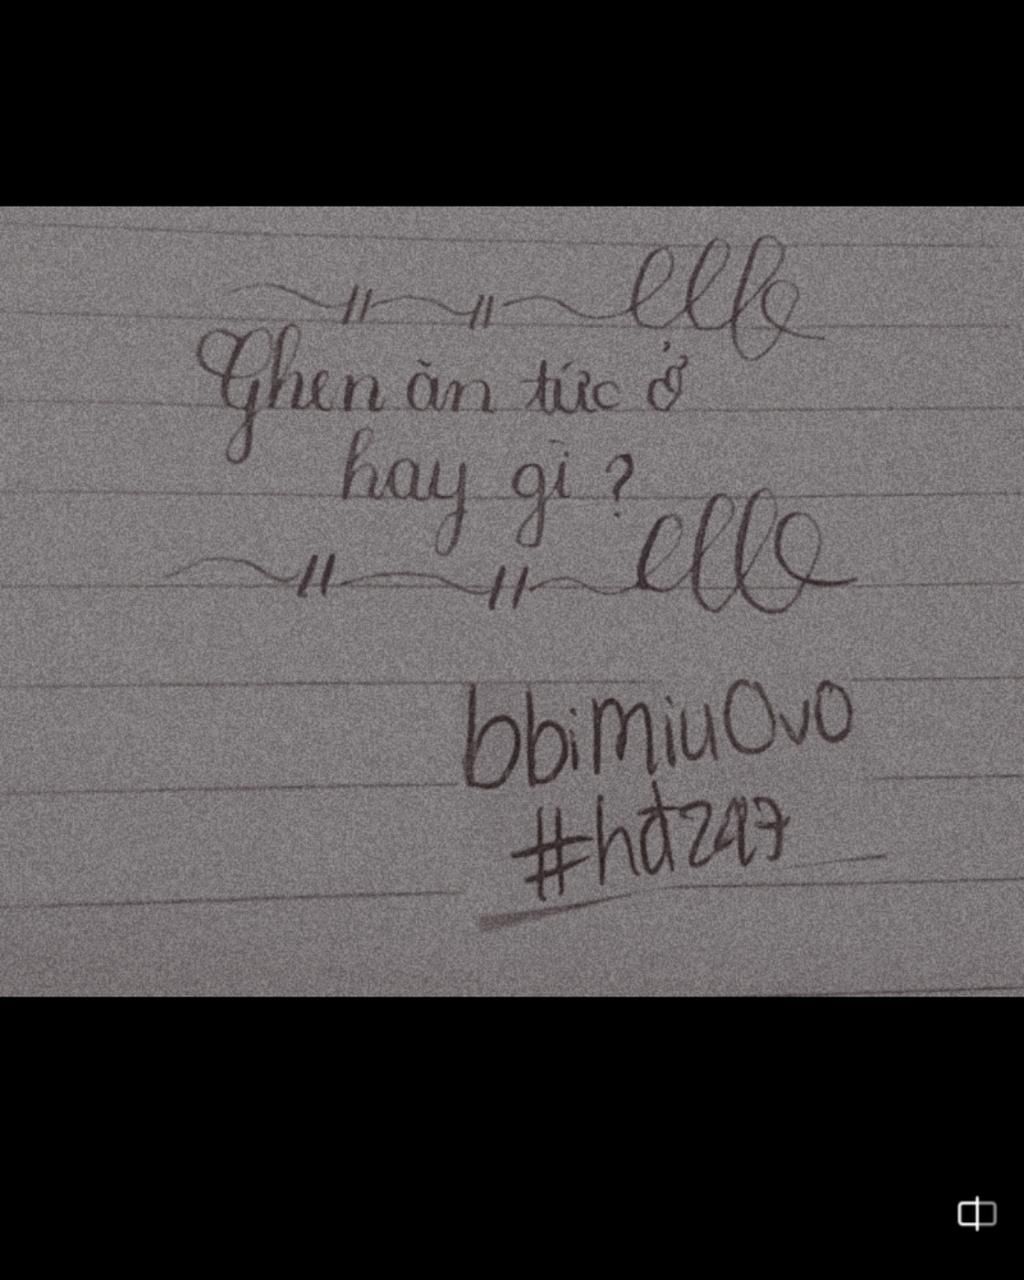 Ghen ăn tức ở
hay gì ?
bbimiu0v0
#hđ247